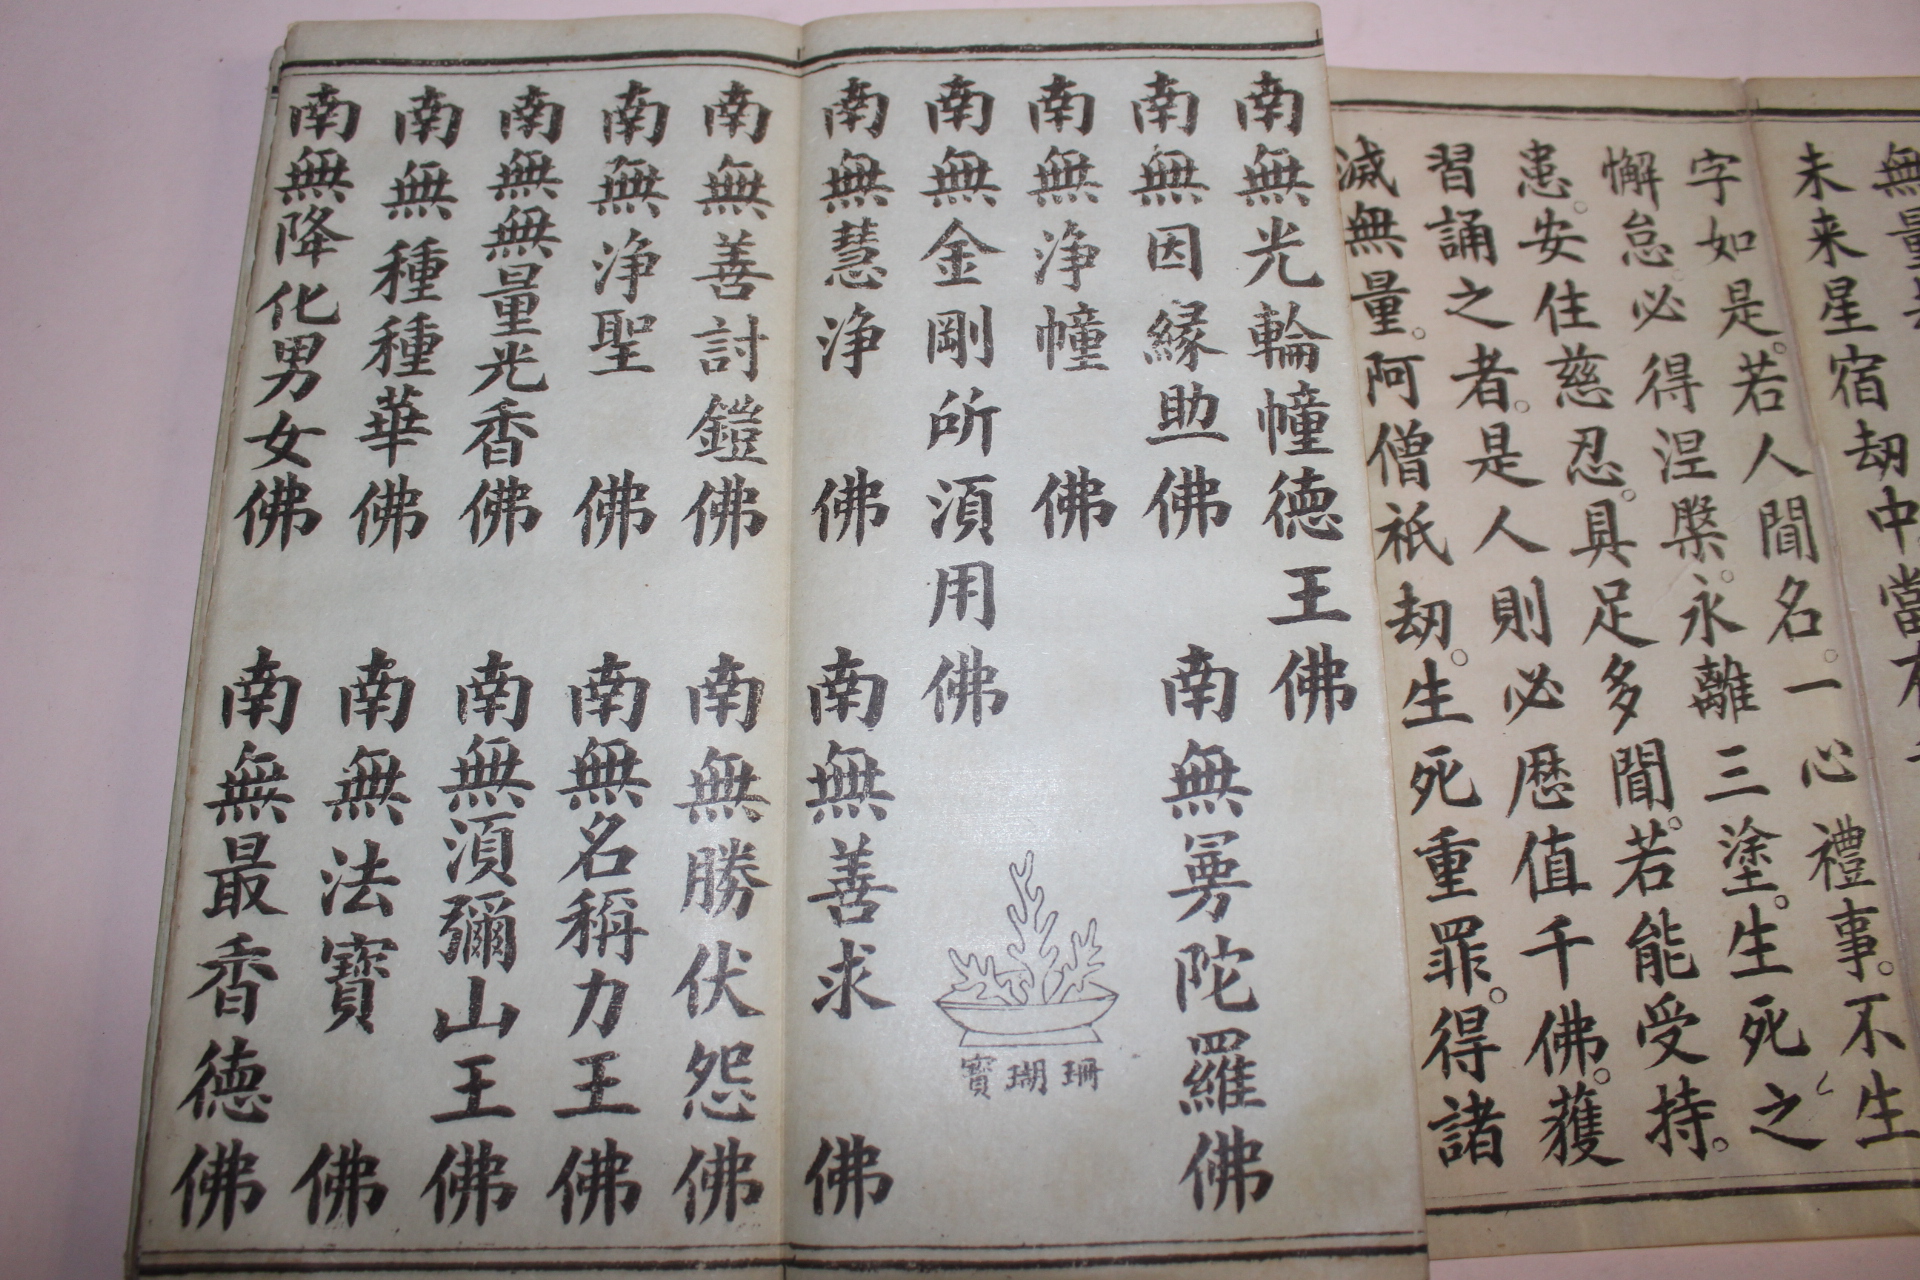 無量
未来星宿劫中當
字如是。若人聞名。一心禮事。不生
懈怠。必得涅槃。永離三塗。生死之
患。安住慈忍。具足多聞。若能受持。
習誦之者。是人則必歴值千佛。獲
滅無量。阿僧祇劫。生死重罪。得諸
南無光輪幢德王佛
南無因縁助佛 南無曼陀羅佛
南無浄幢佛
南無金剛所湏用佛
珊瑚寶
南無慧浄佛 南無善求佛
南無善討鎧佛 南無勝伏怨佛
南無浄聖佛 南無名稱力王佛
南無無量光香佛 南無湏彌山王佛
南無種種華佛 南無法寶佛
南無降化男女佛 南無最香德佛